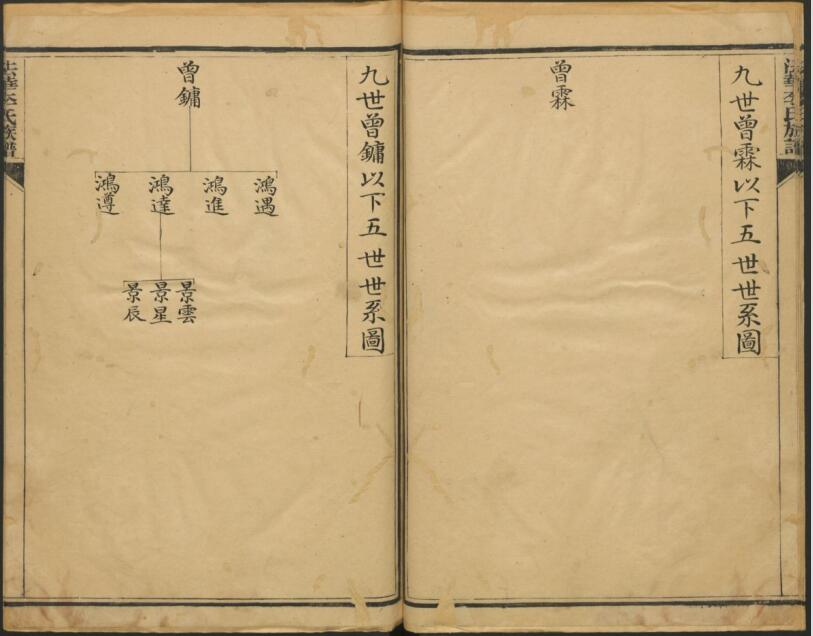 九世曾霖以下五世世系圖
曾霖
九世曾鏞以下五世世系圖
曾鏞
鴻遇
鴻進
鴻達
鴻遵
景雲
景星
景辰
李氏族譜
李氏族譜